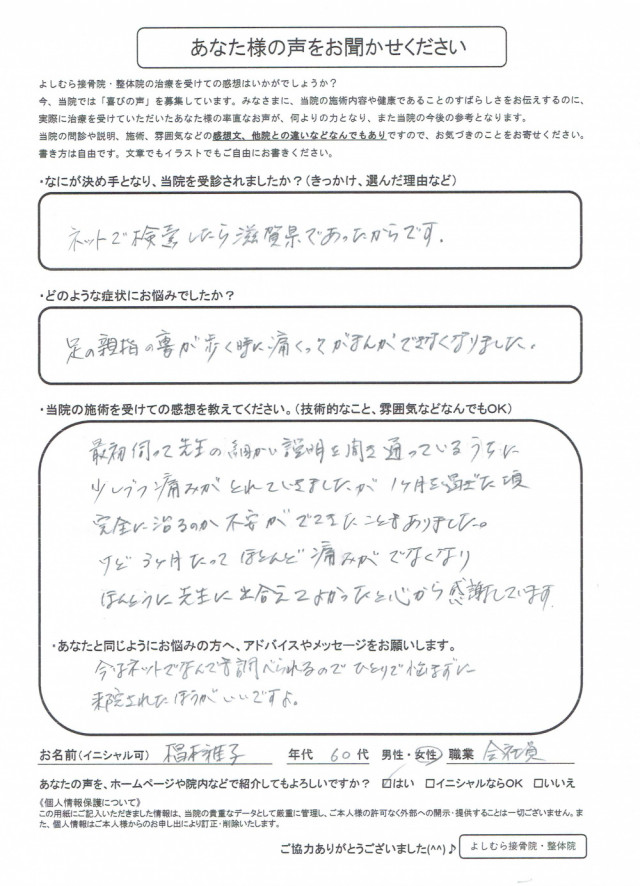 あなた様の声をお聞かせください
よしむら接骨院・整体院の治療を受けての感想はいかがでしょうか？
今、当院では「喜びの声」を募集しています。みなさまに、当院の施術内容や健康であることのすばらしさをお伝えするのに、
実際に治療を受けていただいたあなた様の率直なお声が、何よりの力となり、また当院の今後の参考となります。
当院の問診や説明、施術、雰囲気などの感想文、他院との違いなどなんでもありですので、お気づきのことをお寄せください。
書き方は自由です。文章でもイラストでもご自由にお書きください。
・なにが決め手となり、当院を受診されましたか？（きっかけ、選んだ理由など）
ネットで検索したら滋賀県であったからです。
・どのような症状にお悩みでしたか？
足の親指の裏が歩く時に痛くってがまんができなくなりました。
・当院の施術を受けての感想を教えてください。（技術的なこと、雰囲気などなんでもOK）
最初伺って先生の細かい説明を聞き通っているうちに
少しづつ痛みがとれていきましたが1ヶ月を過ぎた頃
完全に治るのか不安がでてきたこともありました。
けど3ヶ月たってほとんど痛みがでなくなり
ほんとうに先生に出合えてよかったと心から感謝しています
・あなたと同じようにお悩みの方へ、アドバイスやメッセージをお願いします。
今はネットでなんでも調べられるのでひとりで悩まずに
来院されたほうがいいですよ。
お名前（イニシャル可） 雅子 年代 60代 男性・女性 職業 会社員
あなたの声を、ホームページや院内などで紹介してもよろしいですか？ ☑はい □イニシャルならOK □いいえ
《個人情報保護について》
この用紙にご記入いただきました情報は、当院の貴重なデータとして厳重に管理し、ご本人様の許可なく外部への開示・提供することは一切ございません。ま
た、個人情報はご本人様からのお申し出により訂正・削除いたします。
ご協力ありがとうございました(^^)♪ よしむら接骨院・整体院